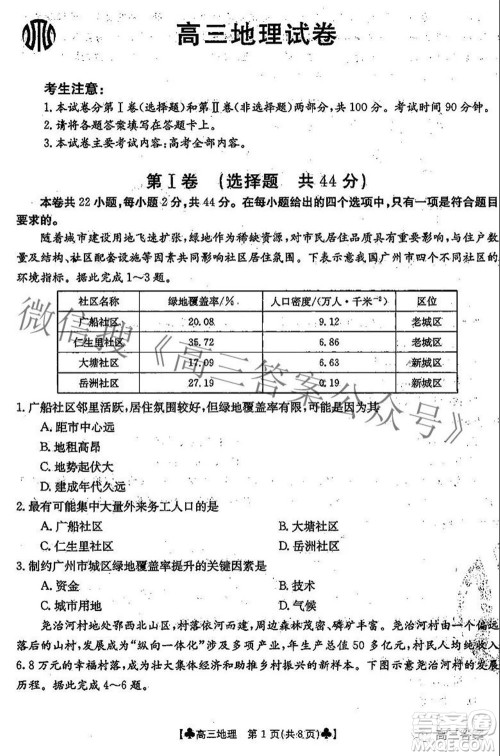 高三地理试卷
考生注意:
1.本试卷分第Ⅰ卷(选择题)和第Ⅱ卷(非选择题)两部分,共100分。考试时间90分钟。
2.请将各题答案填写在答题卡上。
3.本试卷主要考试内容:高考全部内容。
第Ⅰ卷 (选择题 共44分)
本卷共22小题,每小题2分,共44分。在每小题给出的四个选项中,只有一项是符合题目
要求的。
随着城市建设用地飞速扩张,绿地作为稀缺资源,对市民居住品质有重要影响,与住户数
量及结构、社区配套设施等因素共同影响社区居住氛围。下表示意我国广州市四个不同社区的
环境指标。据此完成1~3题。
社区名称 绿地覆盖率/% 人口密度/(万人·千米⁻²) 区位
广船社区 20.08 9.12 老城区
仁生里社区 35.72 6.86 老城区
大塘社区 17.09 6.63 新城区
岳洲社区 27.19 0.19 新城区
1.广船社区邻里活跃,居住氛围较好,但绿地覆盖率有限,可能因为其
A.距市中心远
B.地租高昂
C.地势起伏大
D.建成年代久远
2.最有可能集中大量外来务工人口的是
A.广船社区 B.大塘社区
C.仁生里社区 D.岳洲社区
3.制约广州市城区绿地覆盖率提升的关键因素是
A.资金 B.技术
C.城市用地 D.气候
尧治河村地处鄂西北山区,村落依河而建,周边森林茂密、磷矿丰富。该村由一个偏远
落后的山村,发展成为以“纵向一体化”涉及多项产业,年生产总值50多亿元,村民人均收入
6.8万元的幸福村落,成为壮大集体经济和助推乡村振兴的新样本。下图示意尧治河村的发展
历程。据此完成4~6题。
♣高三地理 第1页(共8页)♣
微信搜《高三答案公众号》